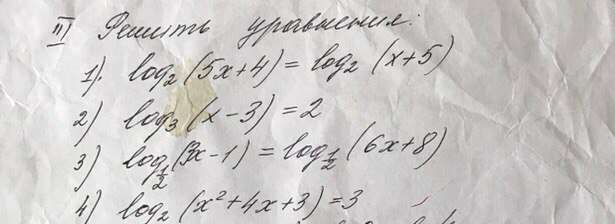 II) Решить уравнения:
1). log₂(5x+4) = log₂(x+5)
2) log₃(x-3) = 2
3) log_{1/2}(3x-1) = log_{1/2}(6x+8)
4) log₂(x²+4x+3)=3